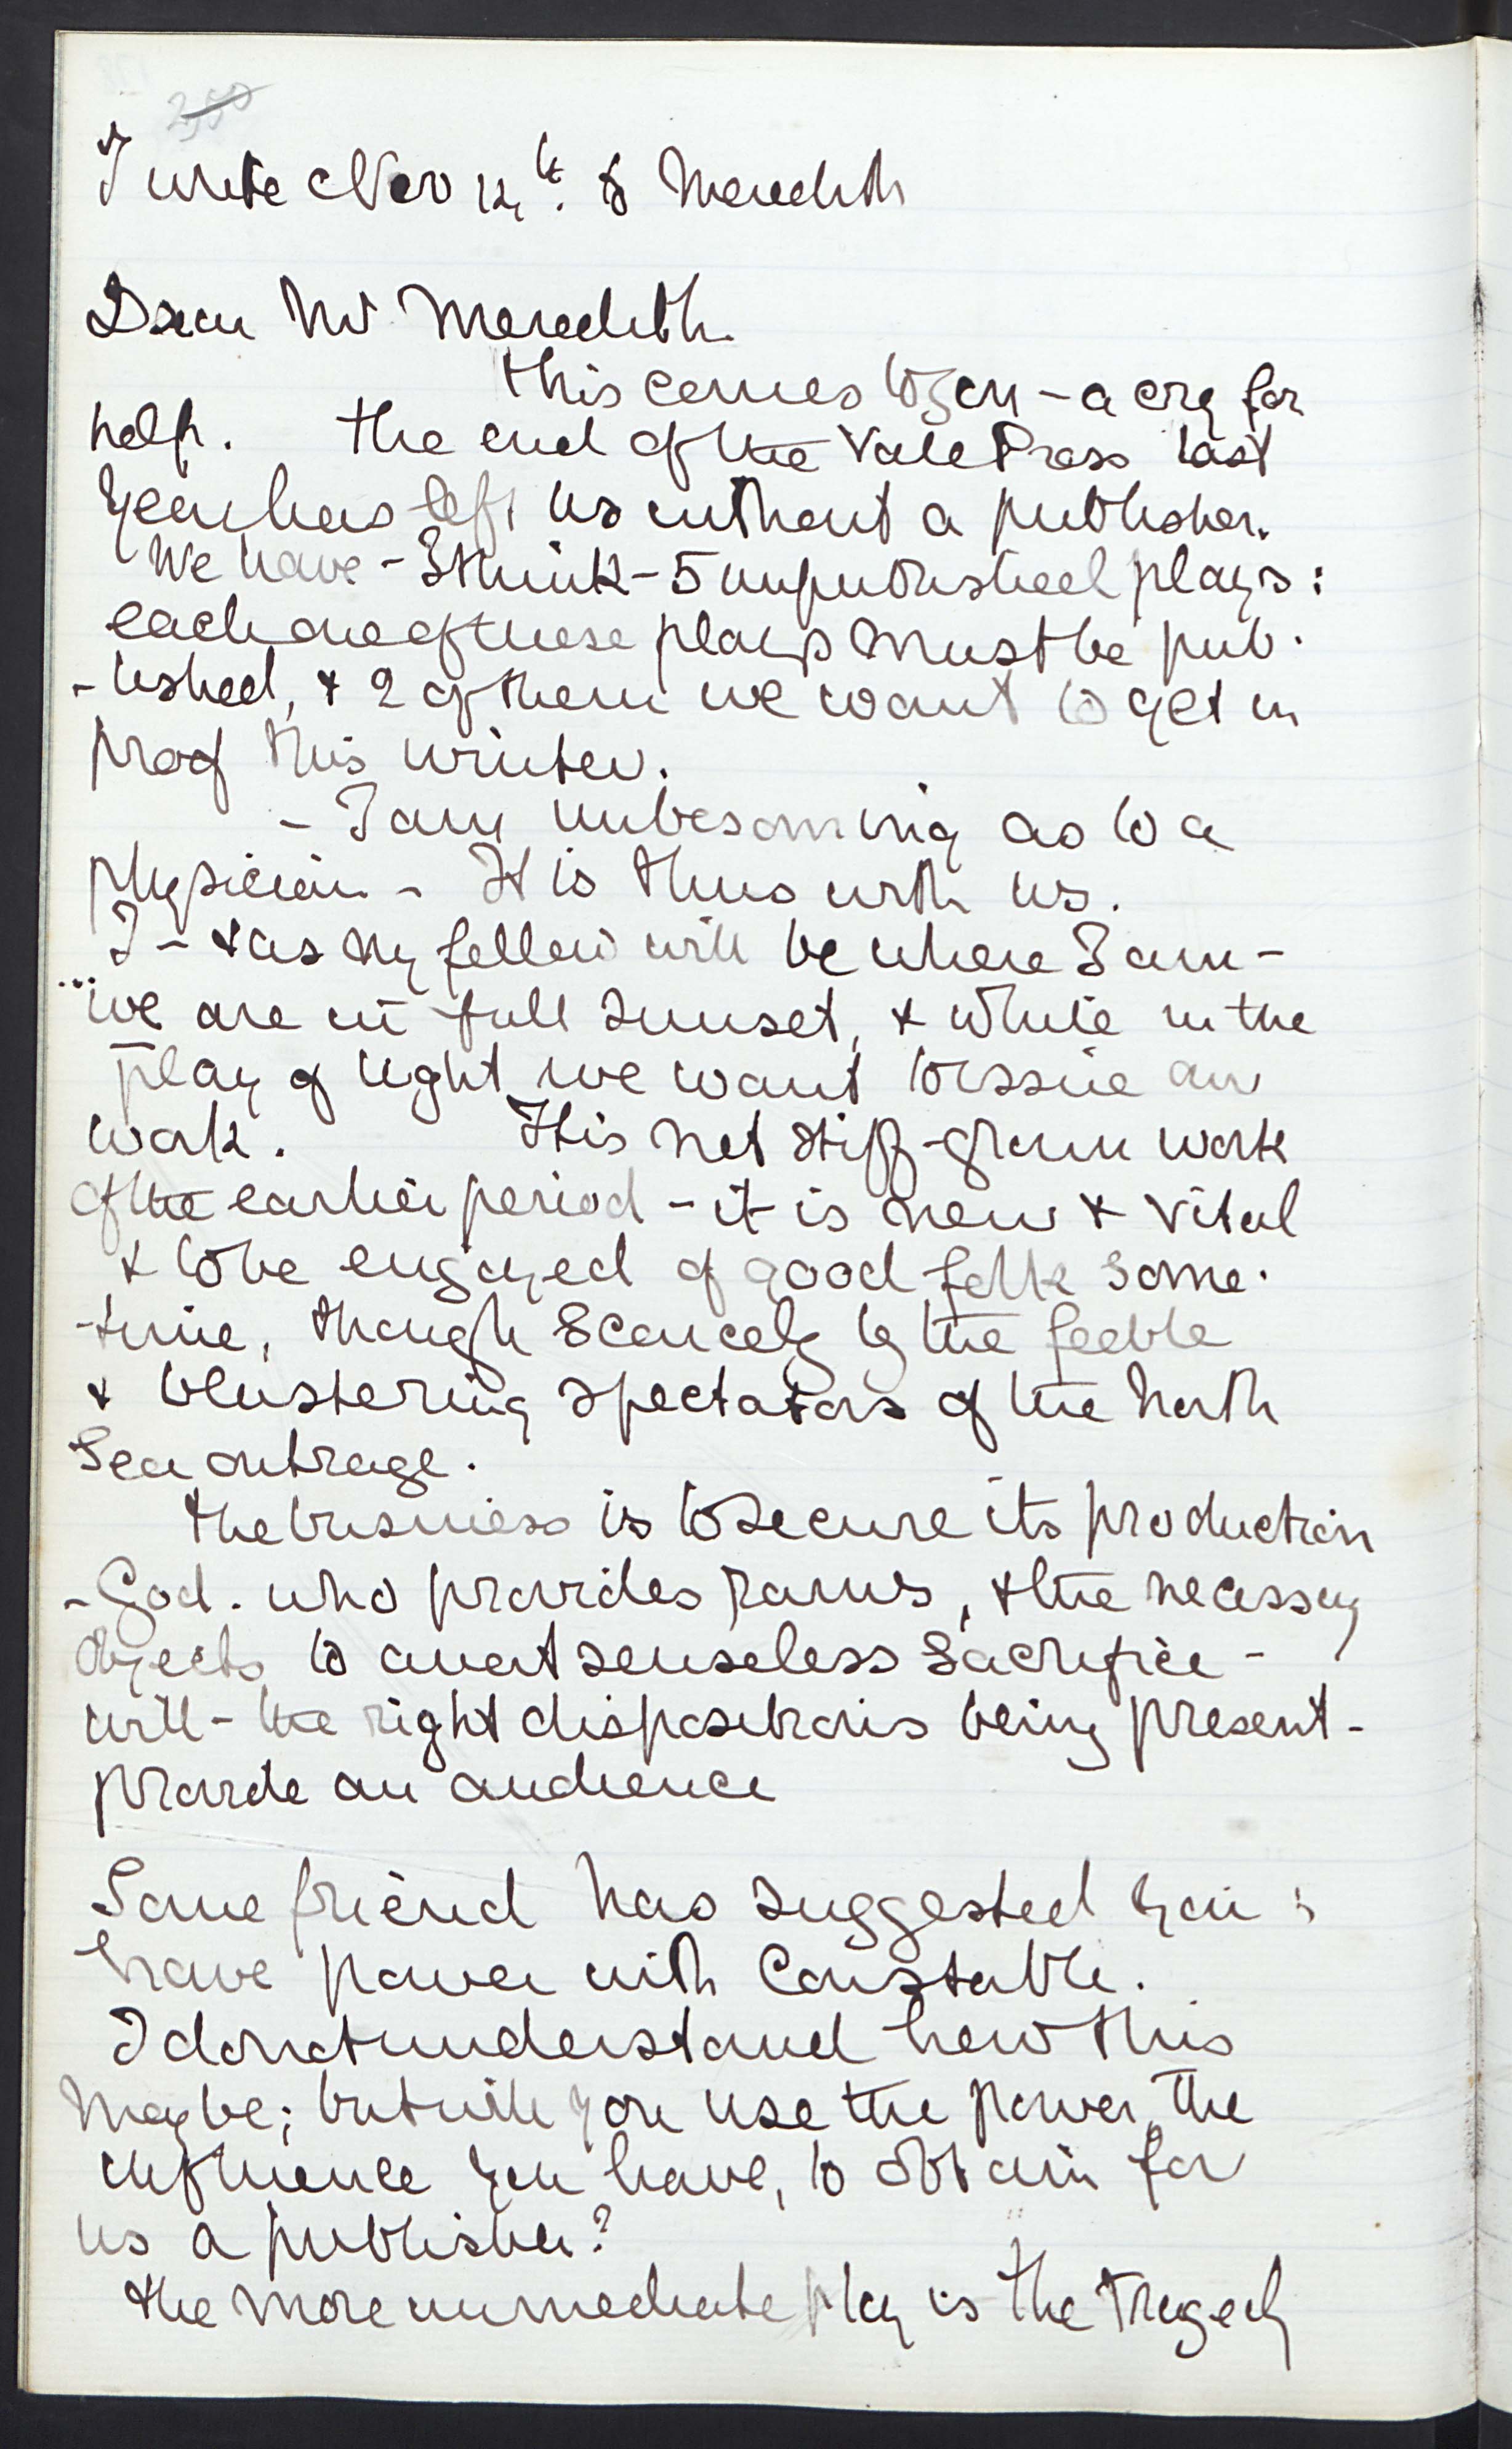 250
I write Nov 12th. to Meredith
Dear Mr Meredith.
This comes to you - a cry for
help. The end of the Vale Press last
year has left us without a publisher.
We have - I think - 5 unpublished plays:
each one of these plays must be pub-
-lished, & 2 of them we want to get in
proof this winter.
- I am unbosoming as to a
physician - It is thus with us.
I - & as my fellow will be where I am -
... we are in full sunset, & while in the
play of light we want to issue our
work. It is not stiff-grown work
of the earlier period - it is new & vital
& to be enjoyed of good folk some-
-time, though scarcely by the feeble
& blustering spectators of the North
Sea outrage.
The business is to secure its production
- God. who provides rams, & the necessary
objects to avert senseless sacrifice -
will - the right dispositions being present -
provide an audience
Some friend has suggested you
have power with Constable.
I do not understand how this
may be; but will you use the power, the
influence you have, to obtain for
us a publisher?
The more immediate play is the Tragedy